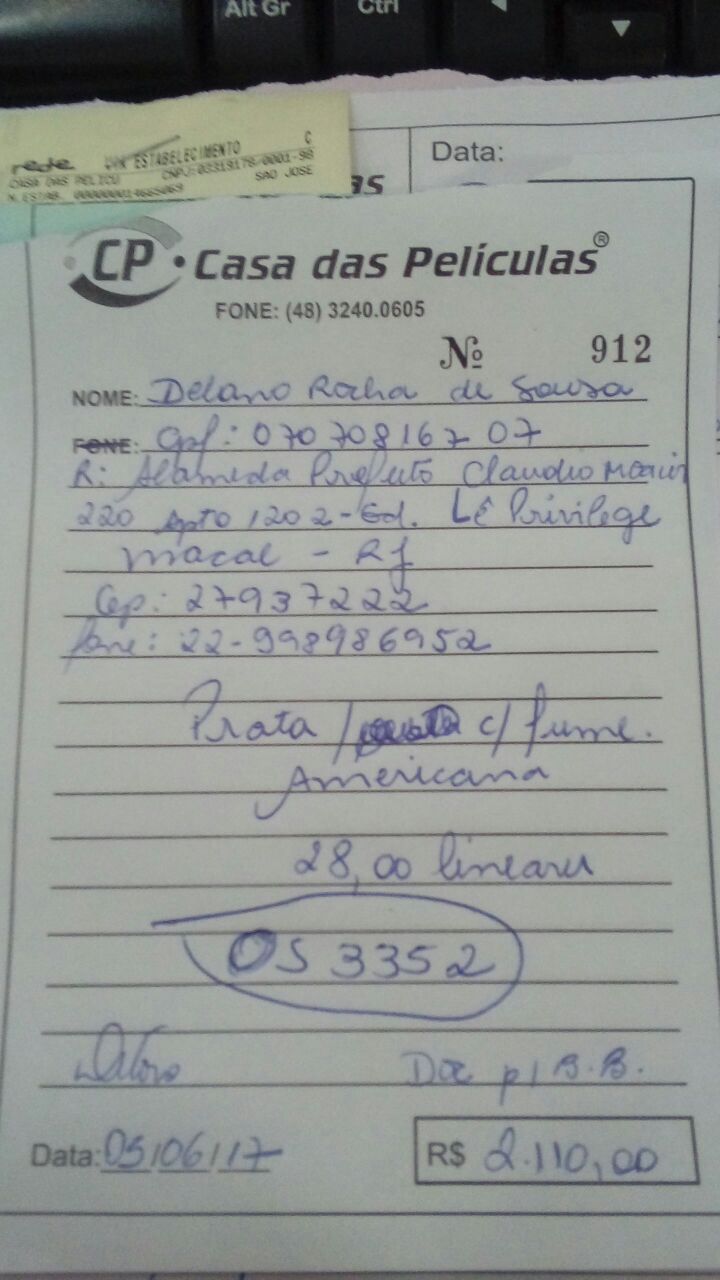 Alt Gr Ctrl
Data:
rede VIA ESTABELECIMENTO C
CASA DAS PELICU CNPJ:03319178/0001-98
N.ESTAB. 000000014665069 SAO JOSE
as
CP Casa das Películas®
FONE: (48) 3240.0605
Nº 912
NOME: Delano Rocha de Sousa
FONE: Cpf: 070708167 07
R: Alameda Prefeito Claudio
220 Apto 1202-Ed. Lê Privilege
Macaé - RJ
Cep: 27937222
fone: 22-998986952
Prata / c/ fume.
Americana
28,00 lineares
OS 3352
Doc p/ B.B.
Data: 05/06/17
R$ 2.110,00